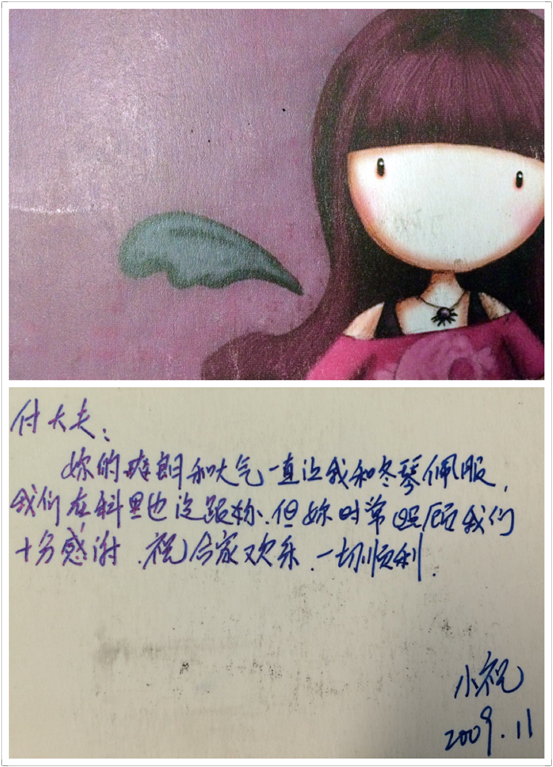 付大夫：
妳的爽朗和大气一直让我和冬琴佩服，
我们在科里也没跟称、但妳时常照顾我们
十分感谢．祝合家欢乐．一切顺利．
小祝
2009.11